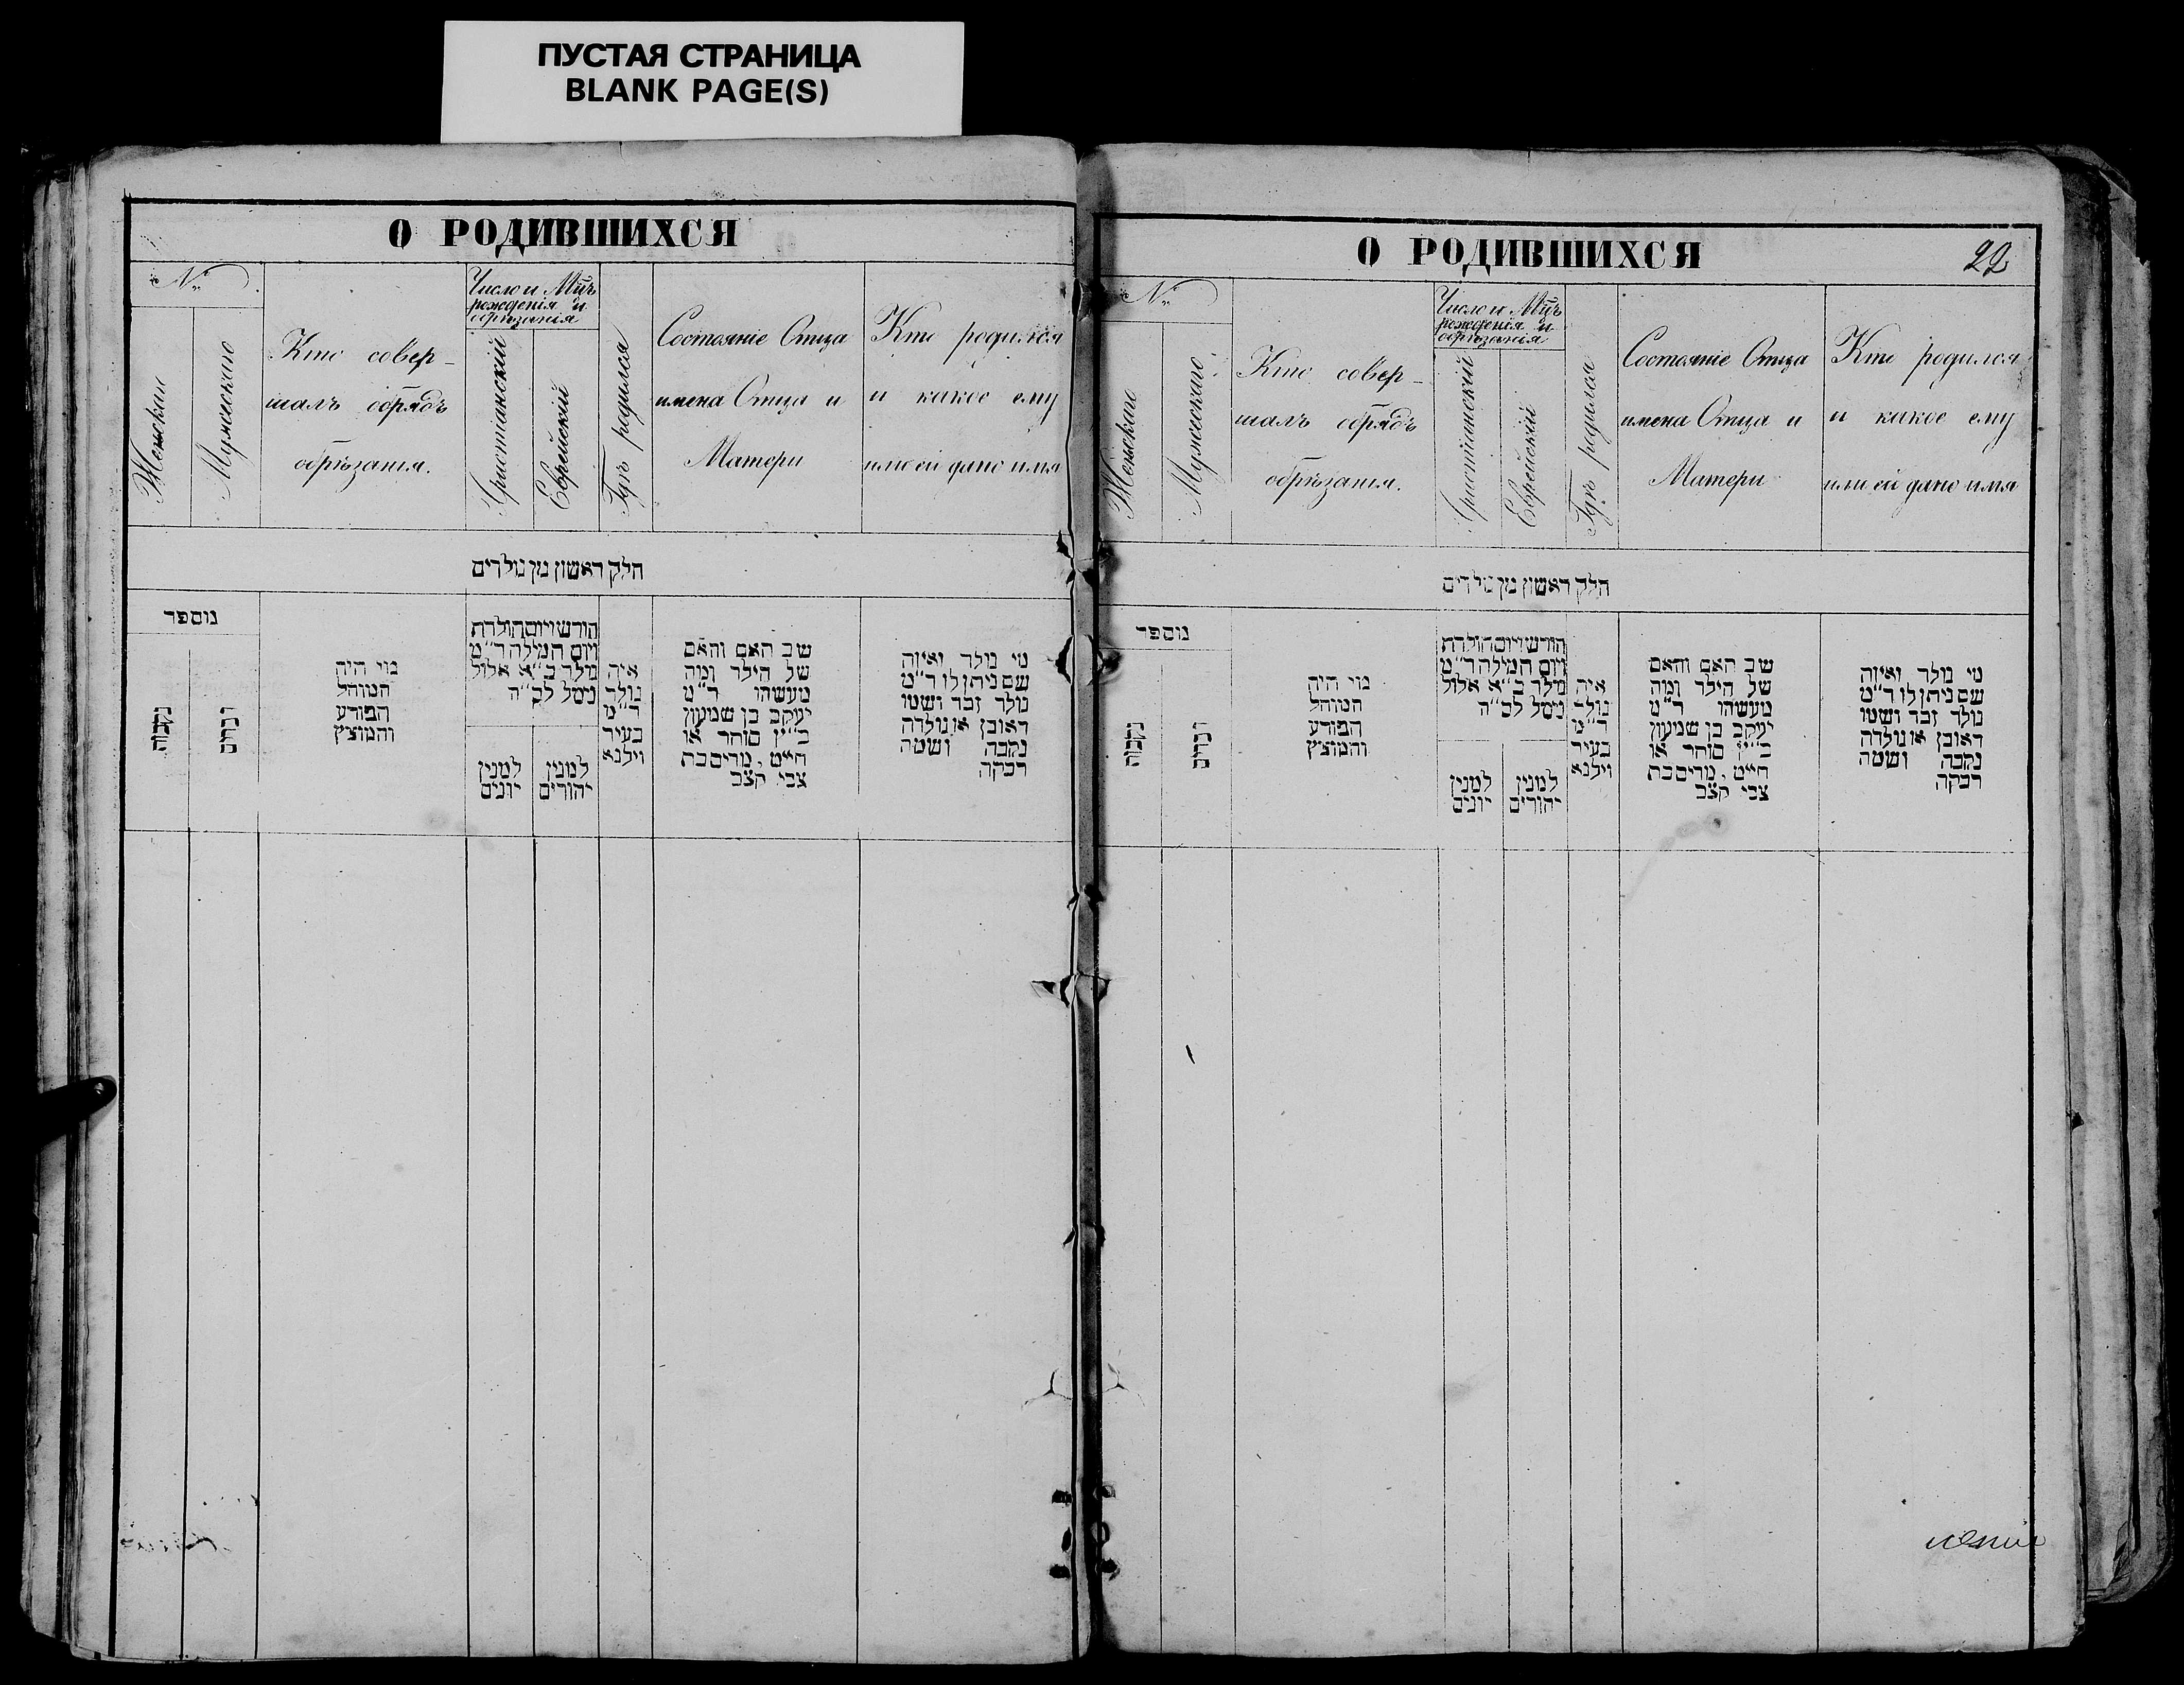 ПУСТАЯ СТРАНИЦА
BLANK PAGE(S)
О РОДИВШИХСЯ
№
Женскаго
Мужескаго
Кто совер-
шалъ обрядъ
обрѣзанія.
Число и Мѣць
рожденія и
обрѣзанія
Христіанскій
Еврейскій
Гдѣ родился
Состояніе Отца
имена Отца и
Матери
Кто родился
и какое ему
или ей дано имя
חלק ראשון מן נולדים
מספר
נקבות
זכרים
מי היה
המוהל
הפורע
והמוצץ
חורש ויום הולדת
ויום המילה ד״מ
נולד ב״א אלול
נימל לב״ה
למנין
יונים
למנין
יהודים
איה
נולד
ד״מ
בעיר
וילנא
שב האם והאם
של הילד ומה
מעשהו ד״מ
יעקב בן שמעון
כ״ץ סוחר או
חייט, מרים בת
צבי קצב
מי נולד ואיזה
שם ניתן לו ד״מ
נולד זכר ושמו
ראובן או נולדה
נקבה ושמה
רבקה
О РОДИВШИХСЯ
22
№
Женскаго
Мужескаго
Кто совер-
шалъ обрядъ
обрѣзанія.
Число и Мѣць
рожденія и
обрѣзанія
Христіанскій
Еврейскій
Гдѣ родился
Состояніе Отца
имена Отца и
Матери
Кто родился
и какое ему
или ей дано имя
חלק ראשון מן נולדים
מספר
נקבות
זכרים
מי היה
המוהל
הפורע
והמוצץ
חורש ויום הולדת
ויום המילה ד״מ
נולד ב״א אלול
נימל לב״ה
למנין
יונים
למנין
יהודים
איה
נולד
ד״מ
בעיר
וילנא
שב האם והאם
של הילד ומה
מעשהו ד״מ
יעקב בן שמעון
כ״ץ סוחר או
חייט, מרים בת
צבי קצב
מי נולד ואיזה
שם ניתן לו ד״מ
נולד זכר ושמו
ראובן או נולדה
נקבה ושמה
רבקה